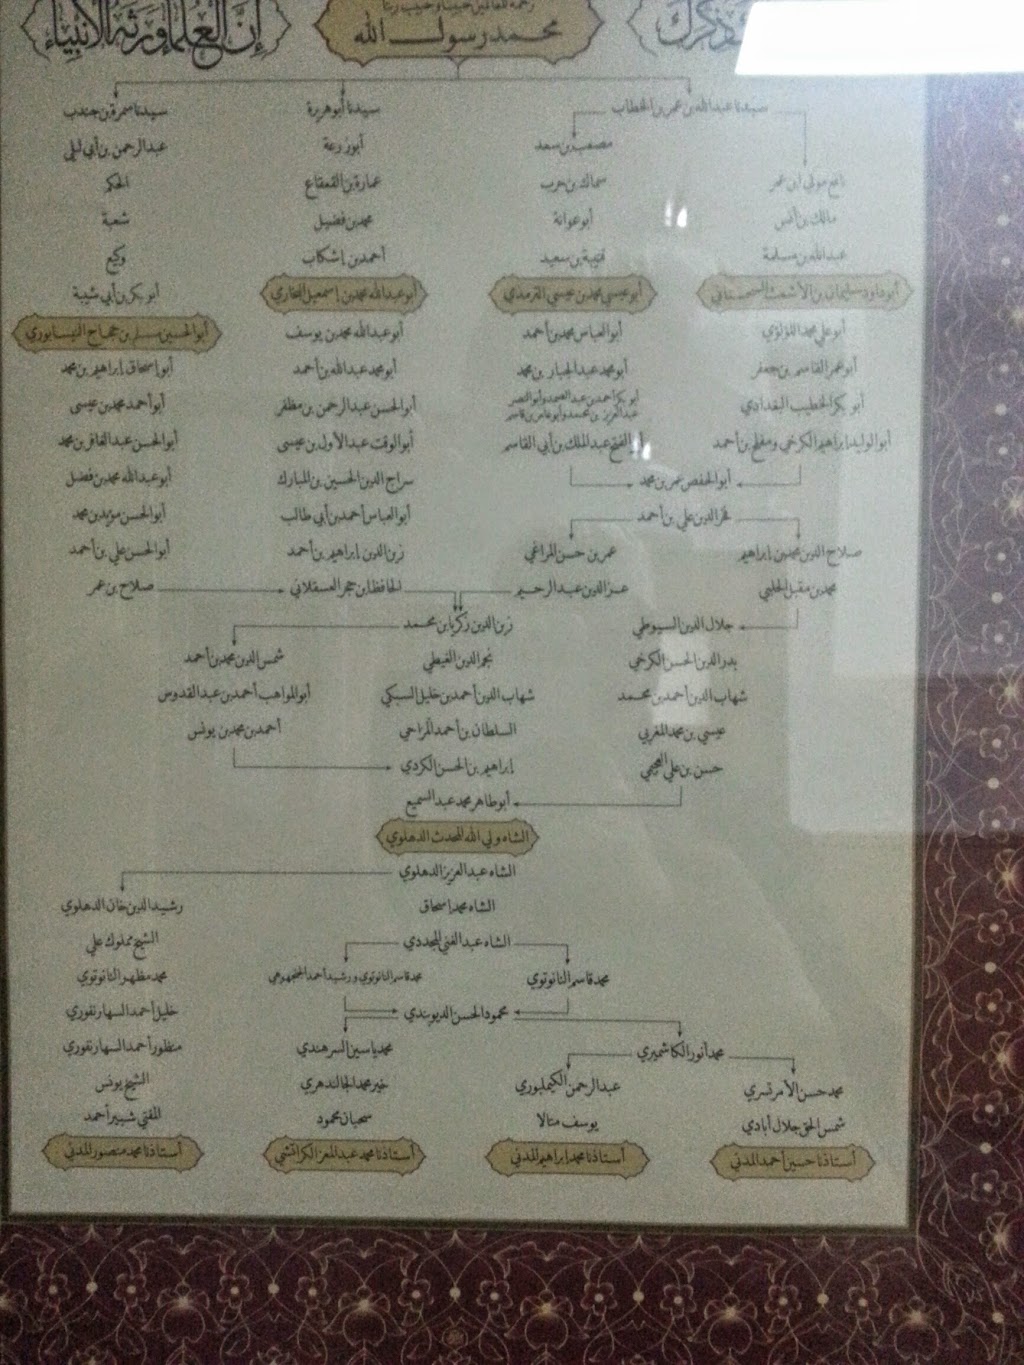 إن العلماء ورثة الأنبياء
محمد رسول الله
سيدنا عبدالله بن عمر بن الخطاب
سيدنا أبو هريرة
سيدنا سمرة بن جندب
مصعب بن سعد
أبو زرعة
عبد الرحمن بن أبي ليلى
نافع مولى ابن عمر
سماك بن حرب
عمارة بن القعقاع
الحكم
مالك بن أنس
أبو عوانة
محمد بن فضيل
شعبة
عبدالله بن مسلمة
قتيبة بن سعيد
أحمد بن إشكاب
وكيع
أبو داود سليمان بن الأشعث السجستاني
أبو عيسى محمد بن عيسى الترمذي
أبو عبدالله محمد بن إسمعيل البخاري
أبو بكر بن أبي شيبة
أبو الحسين مسلم بن حجاج النيسابوري
أبو علي محمد اللؤلؤي
أبو العباس محمد بن أحمد
أبو عبدالله محمد بن يوسف
أبو إسحاق إبراهيم بن محمد
أبو عمر القاسم بن جعفر
أبو محمد عبد الجبار بن محمد
أبو محمد عبدالله بن أحمد
أبو أحمد محمد بن عيسى
أبو بكر الخطيب البغدادي
أبو بكر أحمد بن عبد الصمد وأبو النصر
عبد العزيز بن محمد وأبو عامر بن قاسم
أبو الحسن عبد الرحمن بن مظفر
أبو الحسن عبد الغافر بن محمد
أبو الوليد إبراهيم الكرخي ومفلح بن أحمد
أبو الفتح عبد الملك بن أبي القاسم
أبو الوقت عبد الأول بن عيسى
أبو عبدالله محمد بن فضل
أبو الحفص عمر بن محمد
سراج الدين الحسين بن المبارك
أبو الحسن مؤيد بن محمد
فخر الدين علي بن أحمد
أبو العباس أحمد بن أبي طالب
أبو الحسن علي بن أحمد
صلاح الدين محمد بن إبراهيم
عمر بن حسن المراغي
زين الدين إبراهيم بن أحمد
صلاح بن عمر
محمد بن مقبل الحلبي
عز الدين عبد الرحيم
الحافظ ابن حجر العسقلاني
جلال الدين السيوطي
زين الدين زكريا بن محمد
بدر الدين الحسن الكرخي
نجم الدين الغيطي
شمس الدين محمد بن أحمد
شهاب الدين أحمد بن محمد
شهاب الدين أحمد بن خليل السبكي
أبو المواهب أحمد بن عبد القدوس
عيسى بن محمد المغربي
السلطان بن أحمد المزاحي
أحمد بن محمد بن يونس
حسن بن علي العجيمي
إبراهيم بن الحسن الكردي
أبو طاهر محمد عبد السميع
الشاه ولي الله المحدث الدهلوي
الشاه عبد العزيز الدهلوي
الشاه محمد إسحاق
رشيد الدين خان الدهلوي
الشاه عبد الغني المجددي
الشيخ مملوك علي
محمد قاسم النانوتوي
محمد قاسم النانوتوي ورشيد أحمد الجنجوهي
محمد مظهر النانوتوي
محمود الحسن الديوبندي
خليل أحمد السهارنفوري
محمد أنور الكاشميري
محمد ياسين السرهندي
منظور أحمد السهارنفوري
محمد حسن الأمرتسري
عبد الرحمن الكيملبوري
خير محمد الجالندهري
الشيخ يونس
شمس الحق جلال أبادي
يوسف متالا
سحبان محمود
المفتي شبير أحمد
أستاذنا حسين أحمد المدني
أستاذنا محمد إبراهيم المدني
أستاذنا محمد عبد المعز الكراتشي
أستاذنا محمد منصور المدني